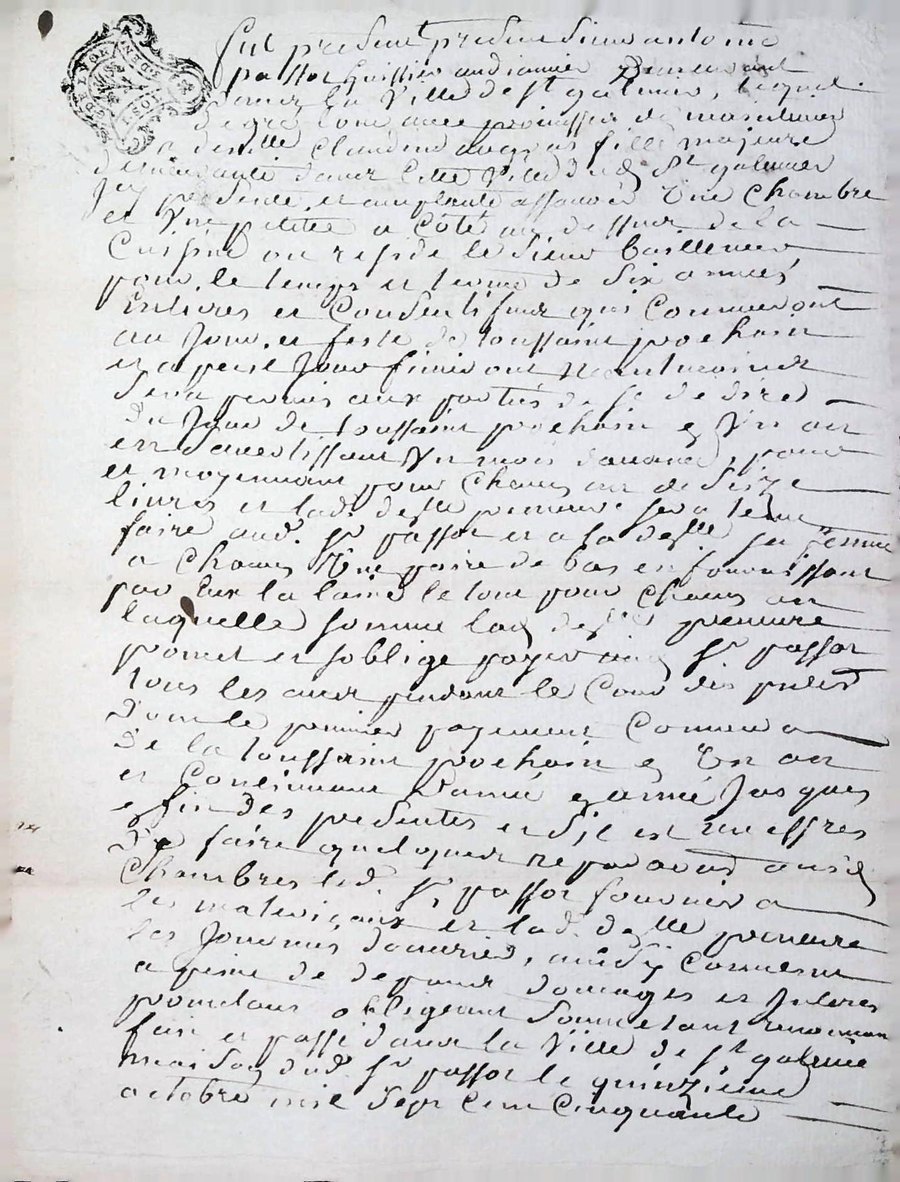 fut present present sieur antoine
passot huissier audiancier Demeurant
dans la Ville de st galmier, lequel
de gré loue avec promesse de maintenir
a demlle claudine fille majeure
demeurante dans cette ville dud st galmier
Icy presente et acceptante assavoir Une Chambre
et Une petite a Côté au dessus de la
Cuisine ou reside le sieur
pour le temps et terme de Six années
Entieres et Consecutifves qui Commenceront
au Jour et feste de toussaint prochain
et a pareil Jour finiront Neantmoins
Sera permis aux parties de se dedire
du Jour de toussaint prochain e Un an
en s'avertissant Un mois davance, pour
et moyennant pour Chacun an de Seize
livres et lad. deslle preneuse sera tenue
faire aud. sr passot et a la deslle sa femme
a Chacun Une paire de bas en fournissant
par Eux la laine le tout pour Chacun an
laquelle somme lad deslle preneuse
promet et soblige payer aud sr passot
tous les ans pendant le Cours des presentes
dont le premier payement Commencera
de la toussaint prochain e Un an
et Continuant Dannée e année Jusques
e fin des presentes et s'il est necessaire
de faire quelques reparations ausd
Chambres led. sr passot fournira
les materiaux et lad. deslle preneuse
les Journées douvriers, ainsy Convenu
a peine de depens domages et Interets
parties obligeant Soumetant renonceant
fait et passé dans la Ville de st galmier
maison dud sr passot le quinzieme
octobre mil Sept Cent Cinquante